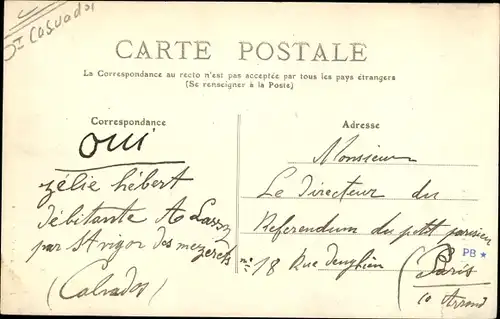 CARTE POSTALE
La Correspondance au recto n'est pas acceptée par tous les pays étrangers
(Se renseigner à la Poste)
Correspondance
oui
zélie hébert
débitante A Lassy
par St vigor des mezerets
(Calvados)
Adresse
Monsieur
Le Directeur du
Referendum du petit parisien
n° 18 Rue denghien (Paris
10 Arrond
PB